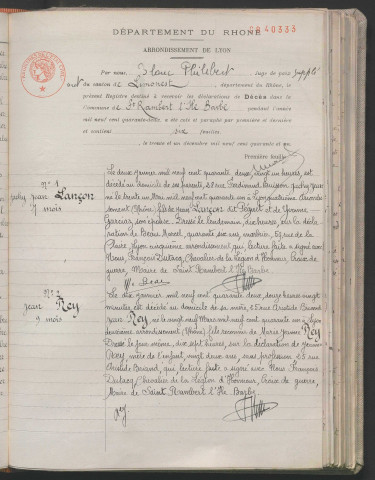 DÉPARTEMENT DU RHÔNE
40333
ARRONDISSEMENT DE LYON
Par nous, Blanc Philibert Juge de paix suppléant
du canton de Limonest, département du Rhône, le
présent Registre destiné à recevoir les déclarations de Décès dans la
Commune de St Rambert l'Ile Barbe pendant l'année
mil neuf cent quarante-deux, a été coté et paraphé par première et dernière
et contient six feuillets.
le trente et un décembre mil neuf cent quarante et un
Première feuille
N° 1
Lançon
7 mois
Le deux janvier mil neuf cent quarante deux, vingt un heures, est
décédé au domicile de ses parents, 28 rue Ferdinand Buisson,
né le trente un Mai mil neuf cent quarante un à Lyon
Lançon dit Piquet et de Yvonne
Garcias, son épouse. Dressé le lendemain, heures, sur la décla
ration de Beau Marcel, quarante six ans, 57 rue de la
Lyon cinquième arrondissement qui, lecture faite a signé avec
Nous, François Dutacq, Chevalier de la Légion d'Honneur, Croix de
guerre, Maire de Saint Rambert l'Ile Barbe.
N° 2
Jean Rey
9 mois
Le dix janvier mil neuf cent quarante deux, douze heures vingt
minutes est décédé au domicile de sa mère, 25 rue Aristide Briand
Jean Rey né le neuf Mars mil neuf cent quarante un à Lyon
deuxième arrondissement (Rhône) fils de Marie Jeanne Rey
Dressé le jour même, dix sept heures, sur la déclaration de Jeanne
Rey, mère de l'enfant, vingt deux ans, sans profession, 25 rue
Aristide Briand, qui, lecture faite a signé avec Nous François
Dutacq, Chevalier de la Légion d'Honneur, Croix de guerre,
Maire de Saint Rambert l'Ile Barbe
Rey